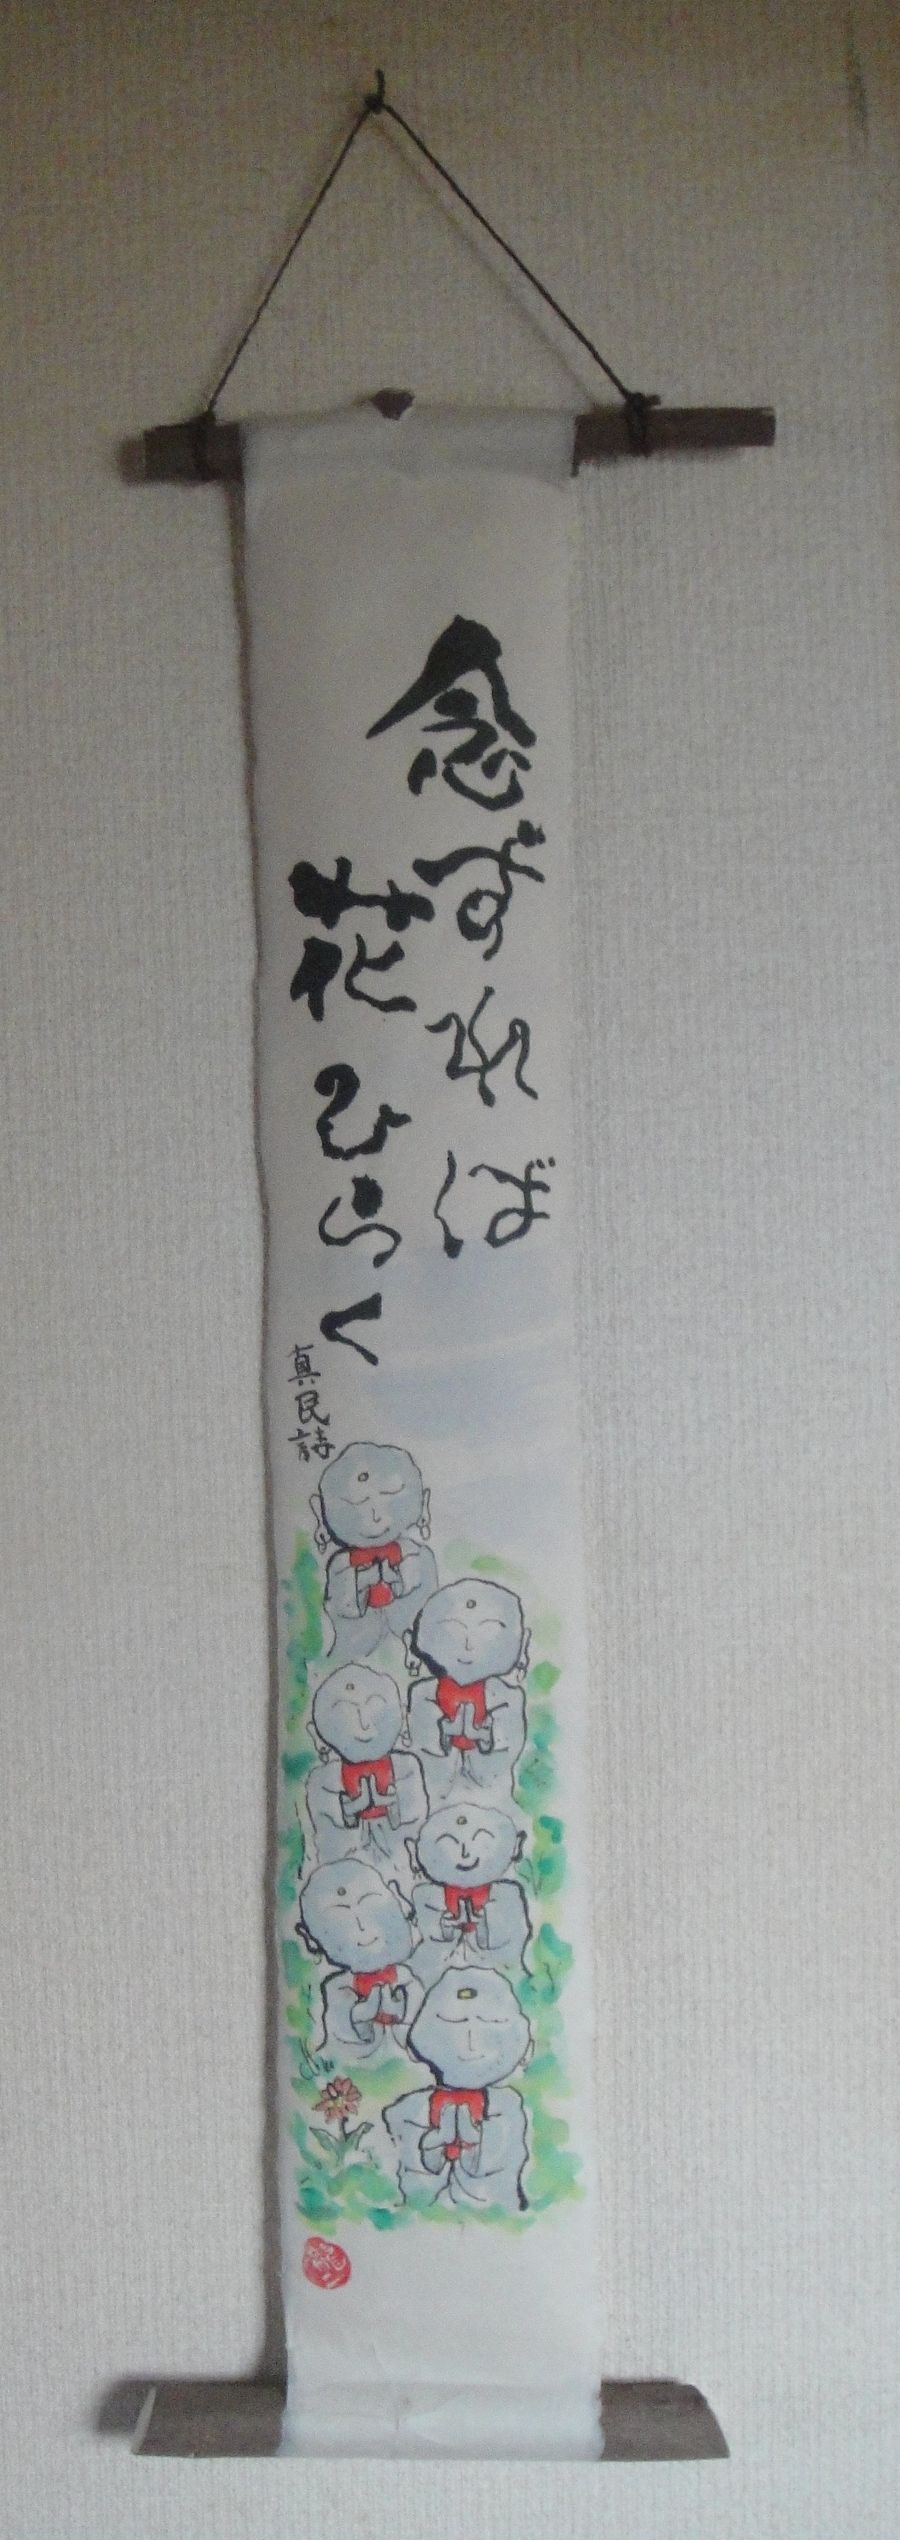 念ずれば
花ひらく
真民詩